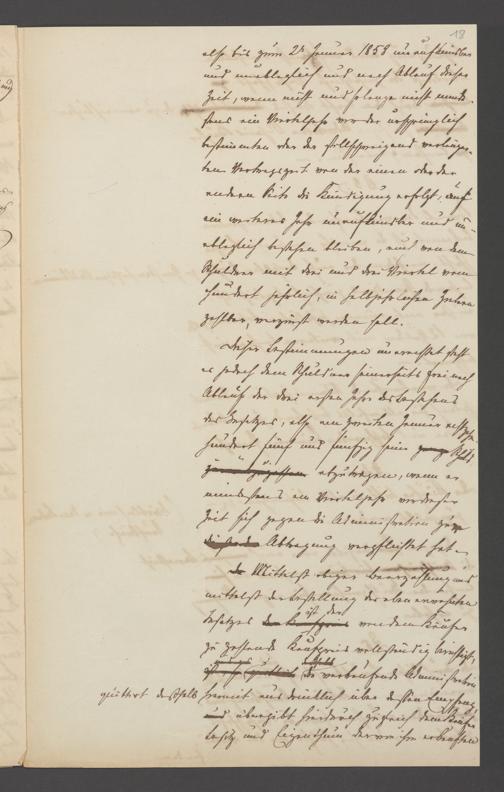 18
also bis zum 2n Januar 1858 unaufkündbar
und unableglich und nach Ablauf dieser
Zeit, wenn nicht und solange nicht minde-
stens ein Vierteljahr vor der ursprünglich
bestimmten oder der stillschweigend verlänger-
ten Vertragszeit von der einen oder der
anderen Seite die Kündigung erfolgt, auf
ein weiteres Jahr unaufkündbar und un-
ableglich bestehen bleiben, und von dem
Schuldner mit drei und drei Viertel vom
Hundert jährlich, in halbjährlichen Zielern
zahlbar, verzinst werden soll.
Dieser Bestimmungen unerachtet steht
es jedoch dem Schuldner seinerseits frei nach
Ablauf der drei ersten Jahre des
des Gesetzes, also am zweiten Januar
hundert fünf und fünfzig seine
abzutragen, wenn er
mindestens ein Vierteljahr vor dieser
Zeit sich gegen die Administration zur
Abtragung verpflichtet hat.
Mittelst obiger Baarzahlung und
mittelst der Bestellung des eben erwähnten
ist der
von dem Käufer
zu zahlende Kaufpreis vollständig berichtigt,
die verkaufende Administration
quittirt deshalb
hiermit ausdrücklich über dessen Empfang
und übergibt hierdurch zugleich dem Käufer
Besitz und Eigenthum der von ihm erkauften